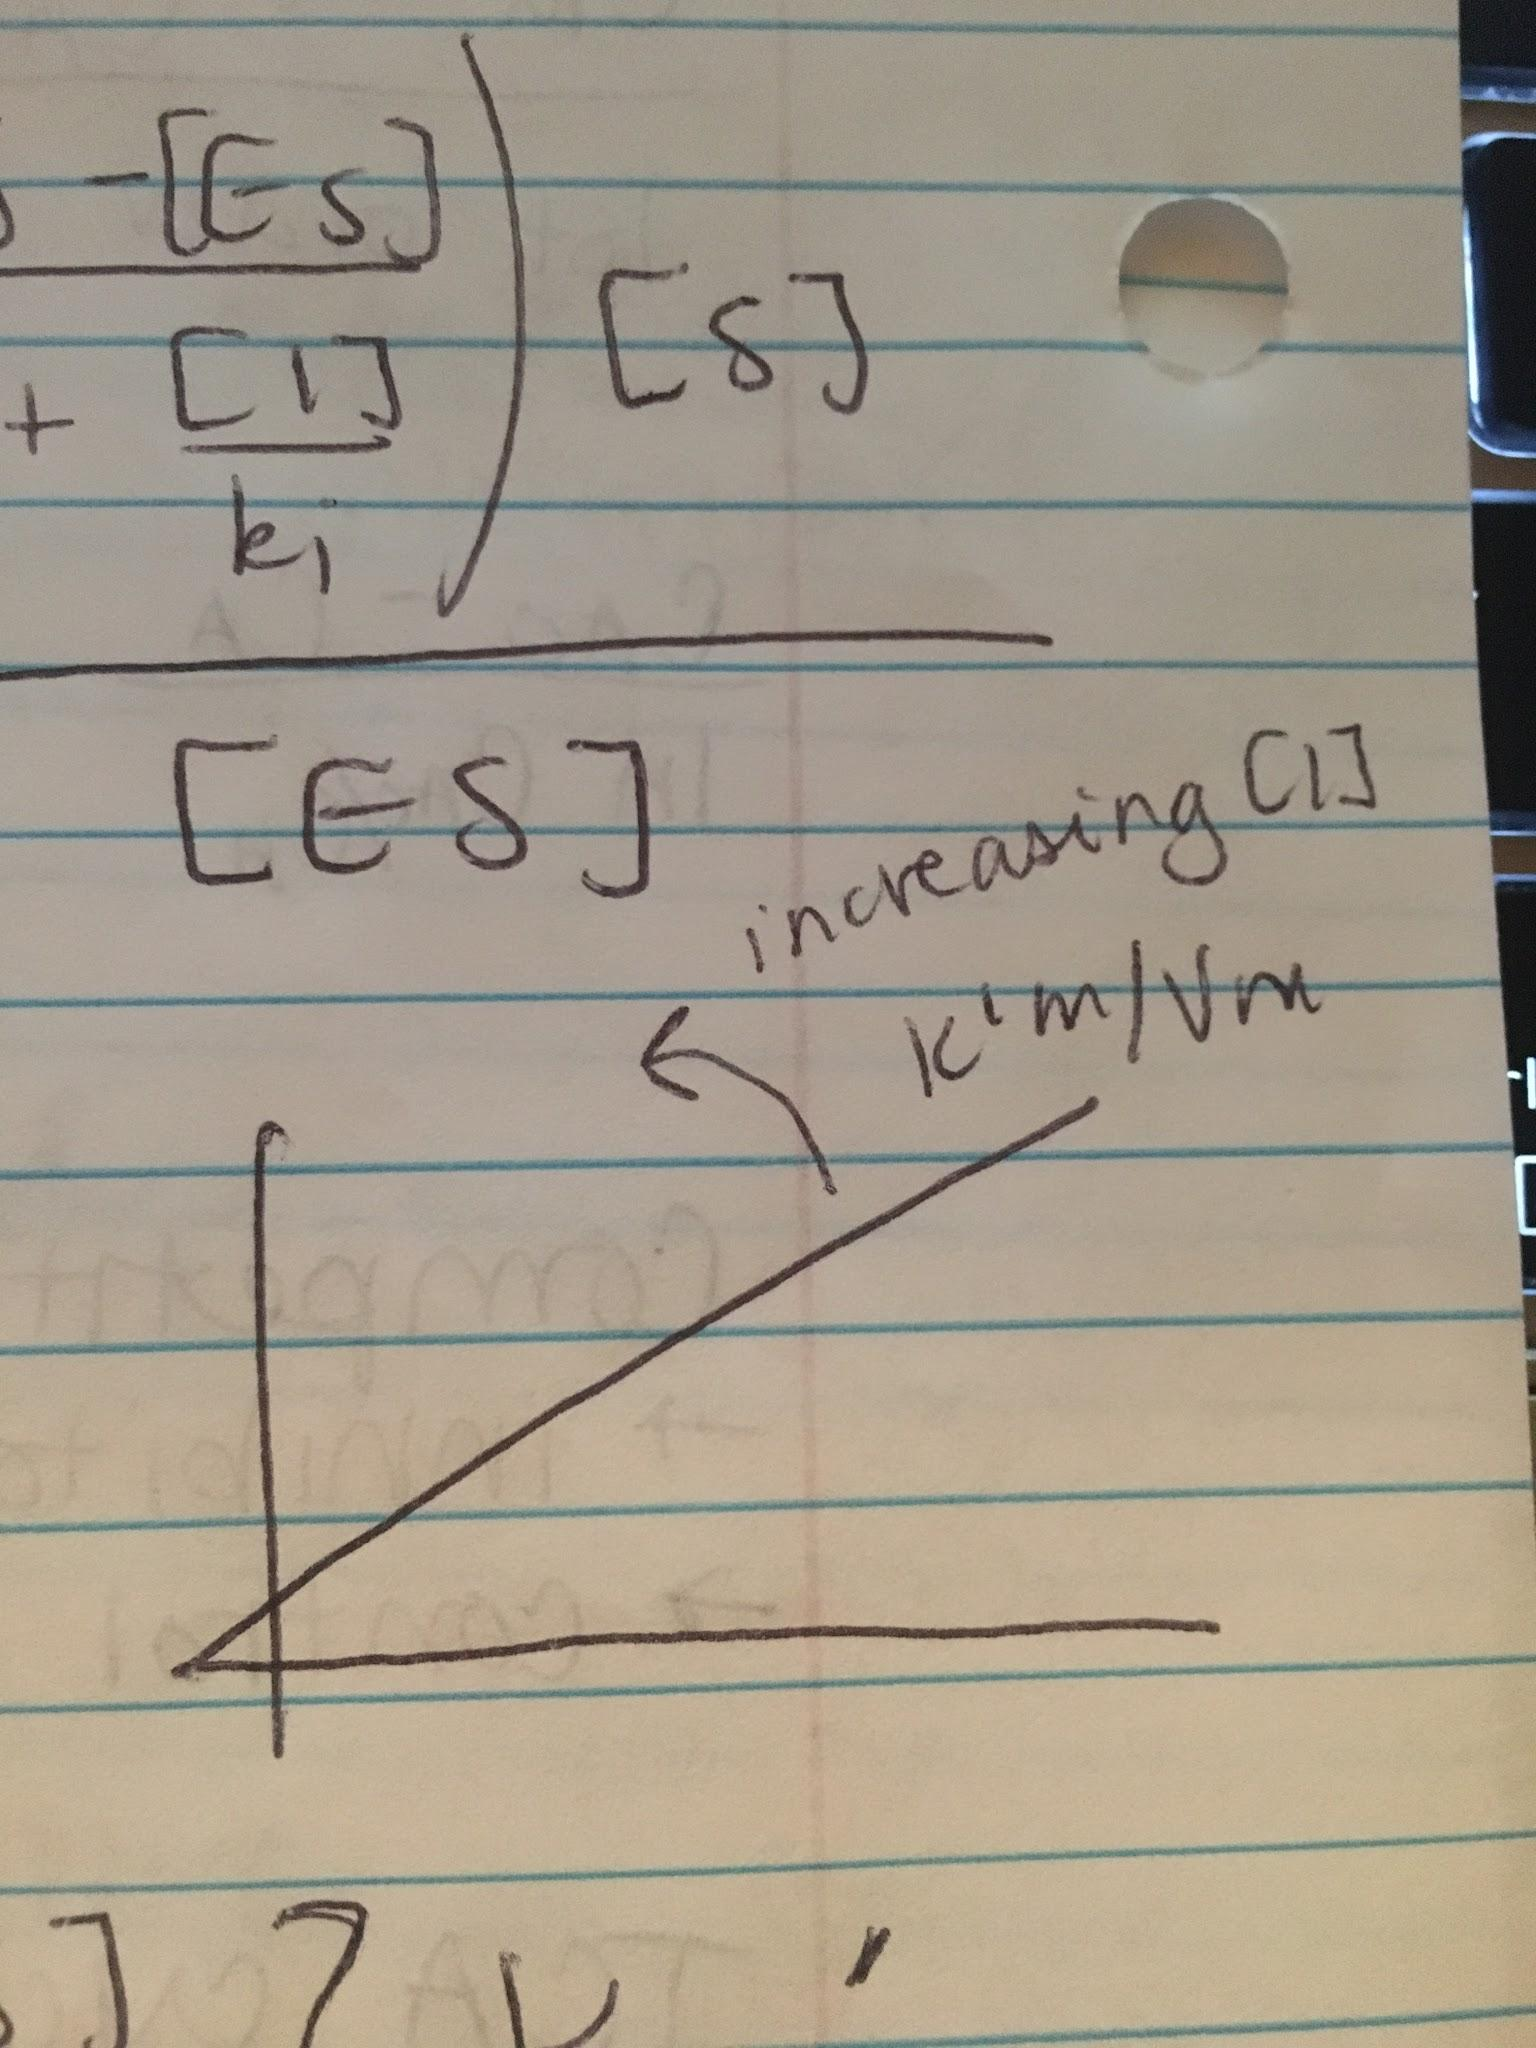 - [ES]
+ [I]
ki
[S]
[ES]
increasing [I]
K'm/Vm